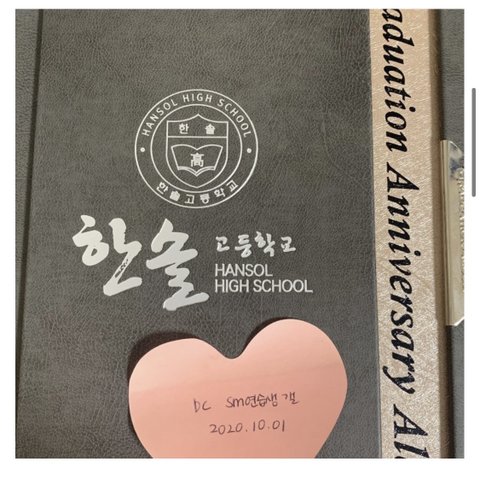 HANSOL HIGH SCHOOL
한 솔
高
한솔고등학교
한솔 고등학교
HANSOL
HIGH SCHOOL
DC sm연습생 갤
2020.10.01
aduation Anniversary Al